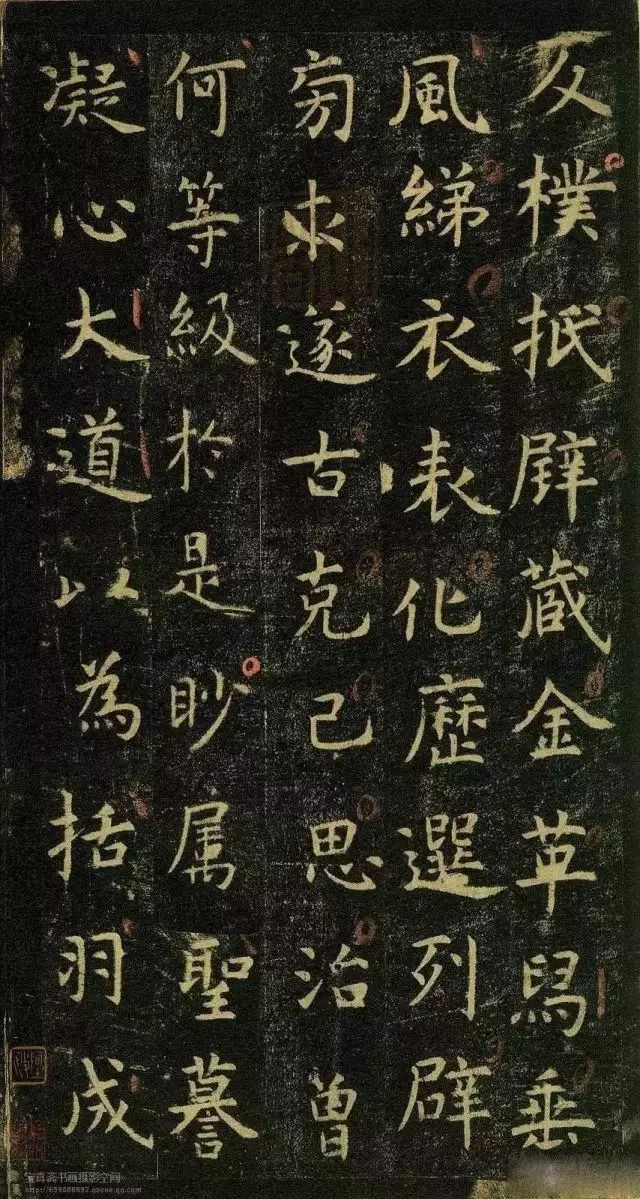 反樸抵璧藏金革舄垂
風綈衣表化歷選列辟
旁求遂古克己思治曾
何等級於是眇属聖謩
凝心大道以為括羽成
宝真斋书画摄影空间
http://659088892.qzone.qq.com